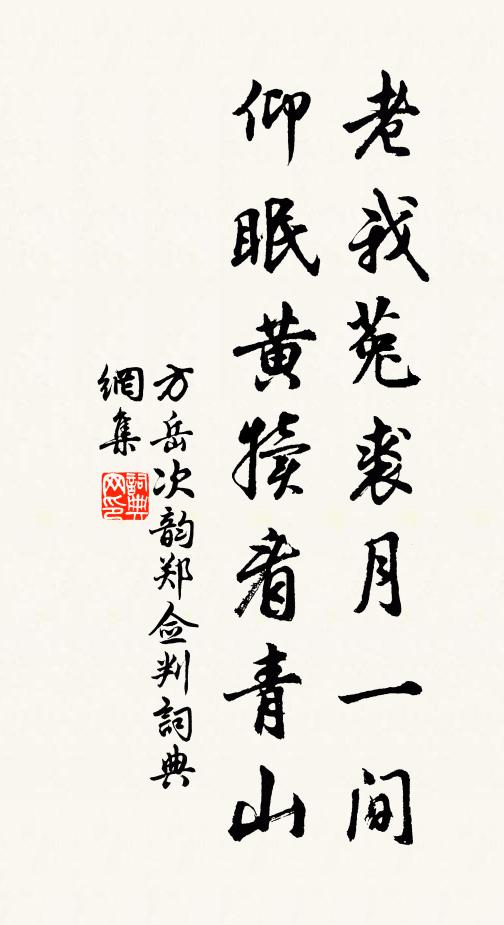 老我菟裘月一间
仰眠黄犊看青山
方岳次韵郑佥判詞典
網集
詞典网印